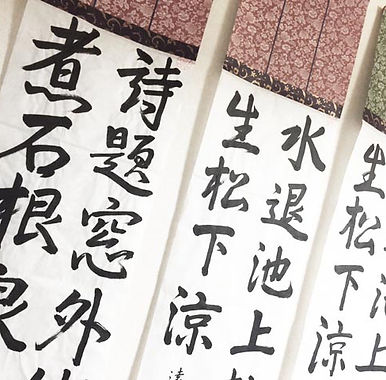 生松下涼
水退池上
生松下涼
詩題窓外
煮石根泉